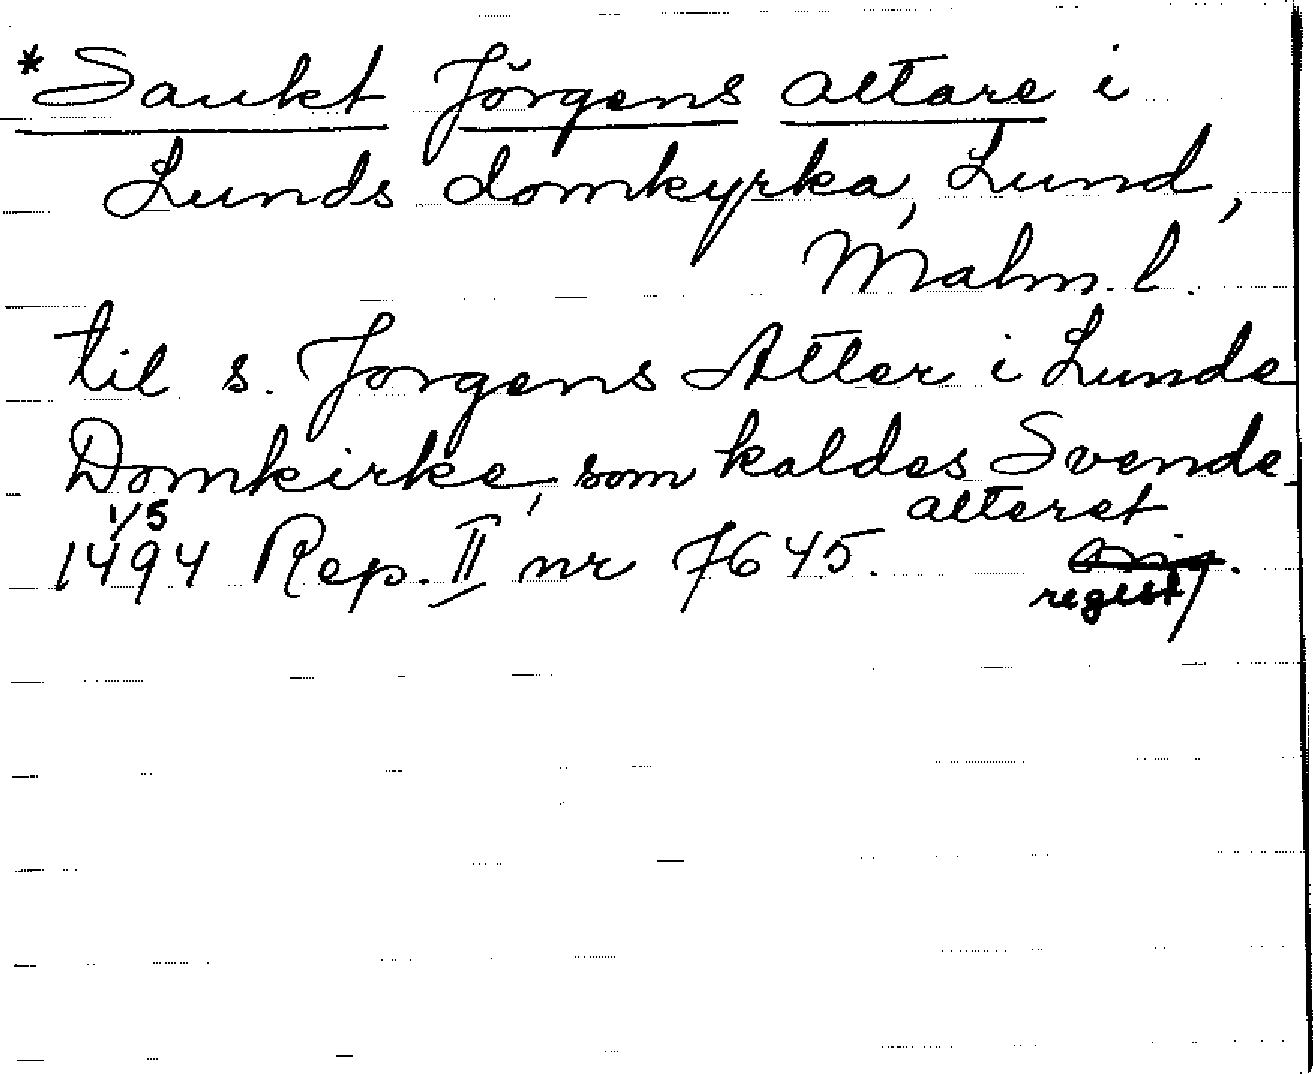 *Sankt Jörgens altare i
Lunds domkyrka, Lund,
Malm. l.
til s. Jorgens Alter i Lunde
Domkirke, som kaldes Svende
alteret
1/5
1494 Rep. II nr 7645.
regest